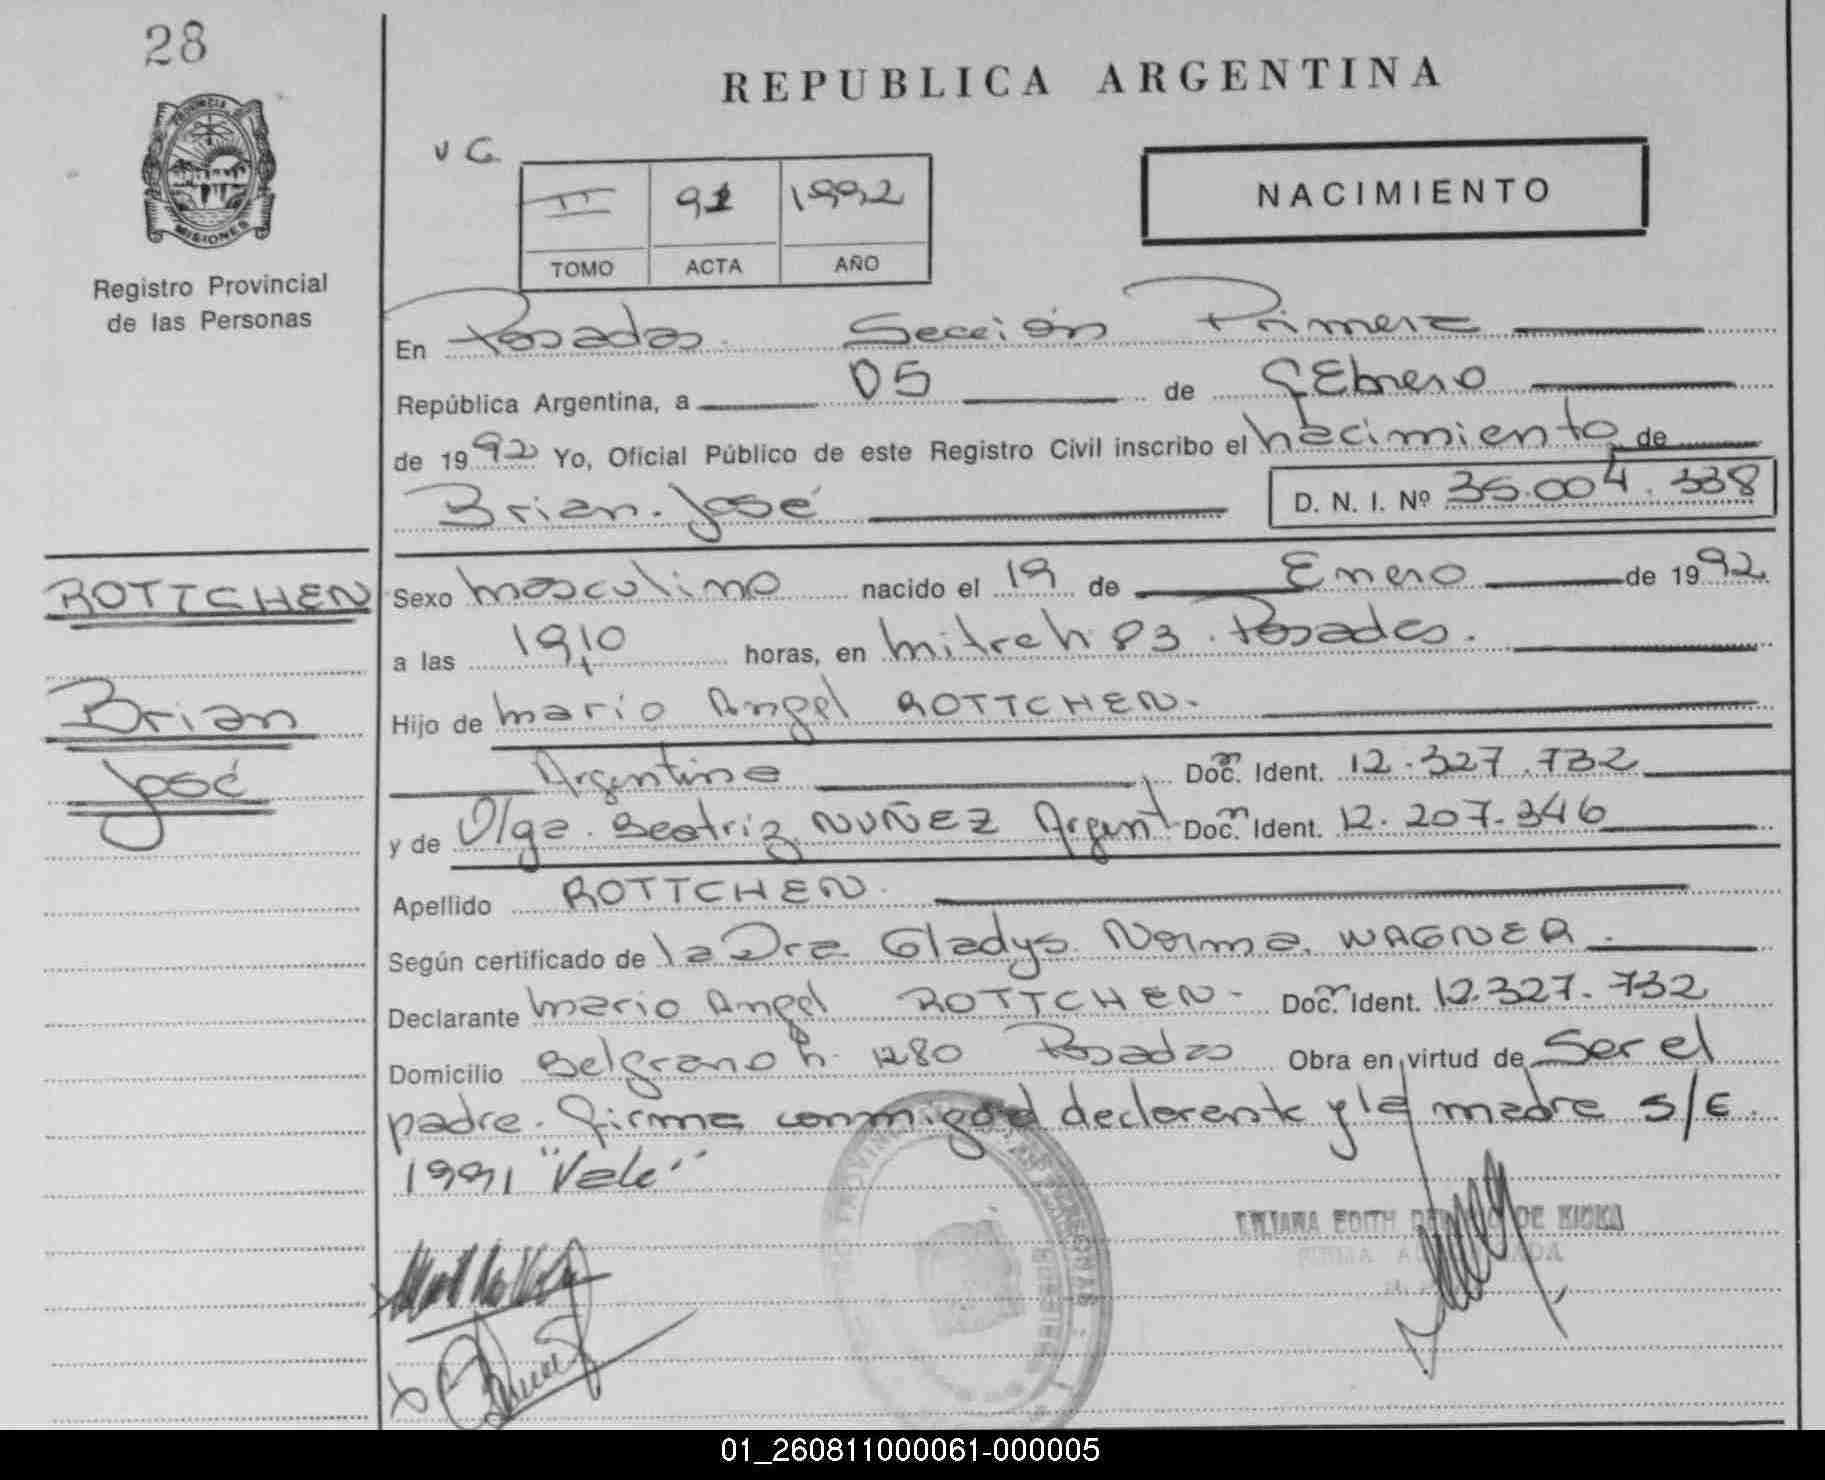 28
REPUBLICA ARGENTINA
PROVINCIA
MISIONES
Registro Provincial
de las Personas
V G.
II 91 1992
TOMO ACTA AÑO
NACIMIENTO
En Posadas. Sección Primera
República Argentina, a 05 de FEbrero
de 1992 Yo, Oficial Público de este Registro Civil inscribo el nacimiento de
Brian. José D. N. I. Nº 36.004.338
ROTTCHEN
Brian
José
Sexo masculino nacido el 19 de Enero de 1992.
a las 19,10 horas, en mitre h 83. Posadas.
Hijo de mario Angel ROTTCHEN.
Argentina Doc. Ident. 12.327.732
y de Olga. Beatriz NUÑEZ Argent. Doc. Ident. 12.207.346
Apellido ROTTCHEN.
Según certificado de la Dra Gladys Norma. WAGNER.
Declarante mario Angel ROTTCHEN- Doc. Ident. 12.327.732
Domicilio Belgrano h. 1280 Posadas Obra en virtud de Ser el
padre. firma conmigo el declarante y la madre s/E.
1991 "Vale"
LILIANA EDITH DE KIOKA
01_260811000061-000005